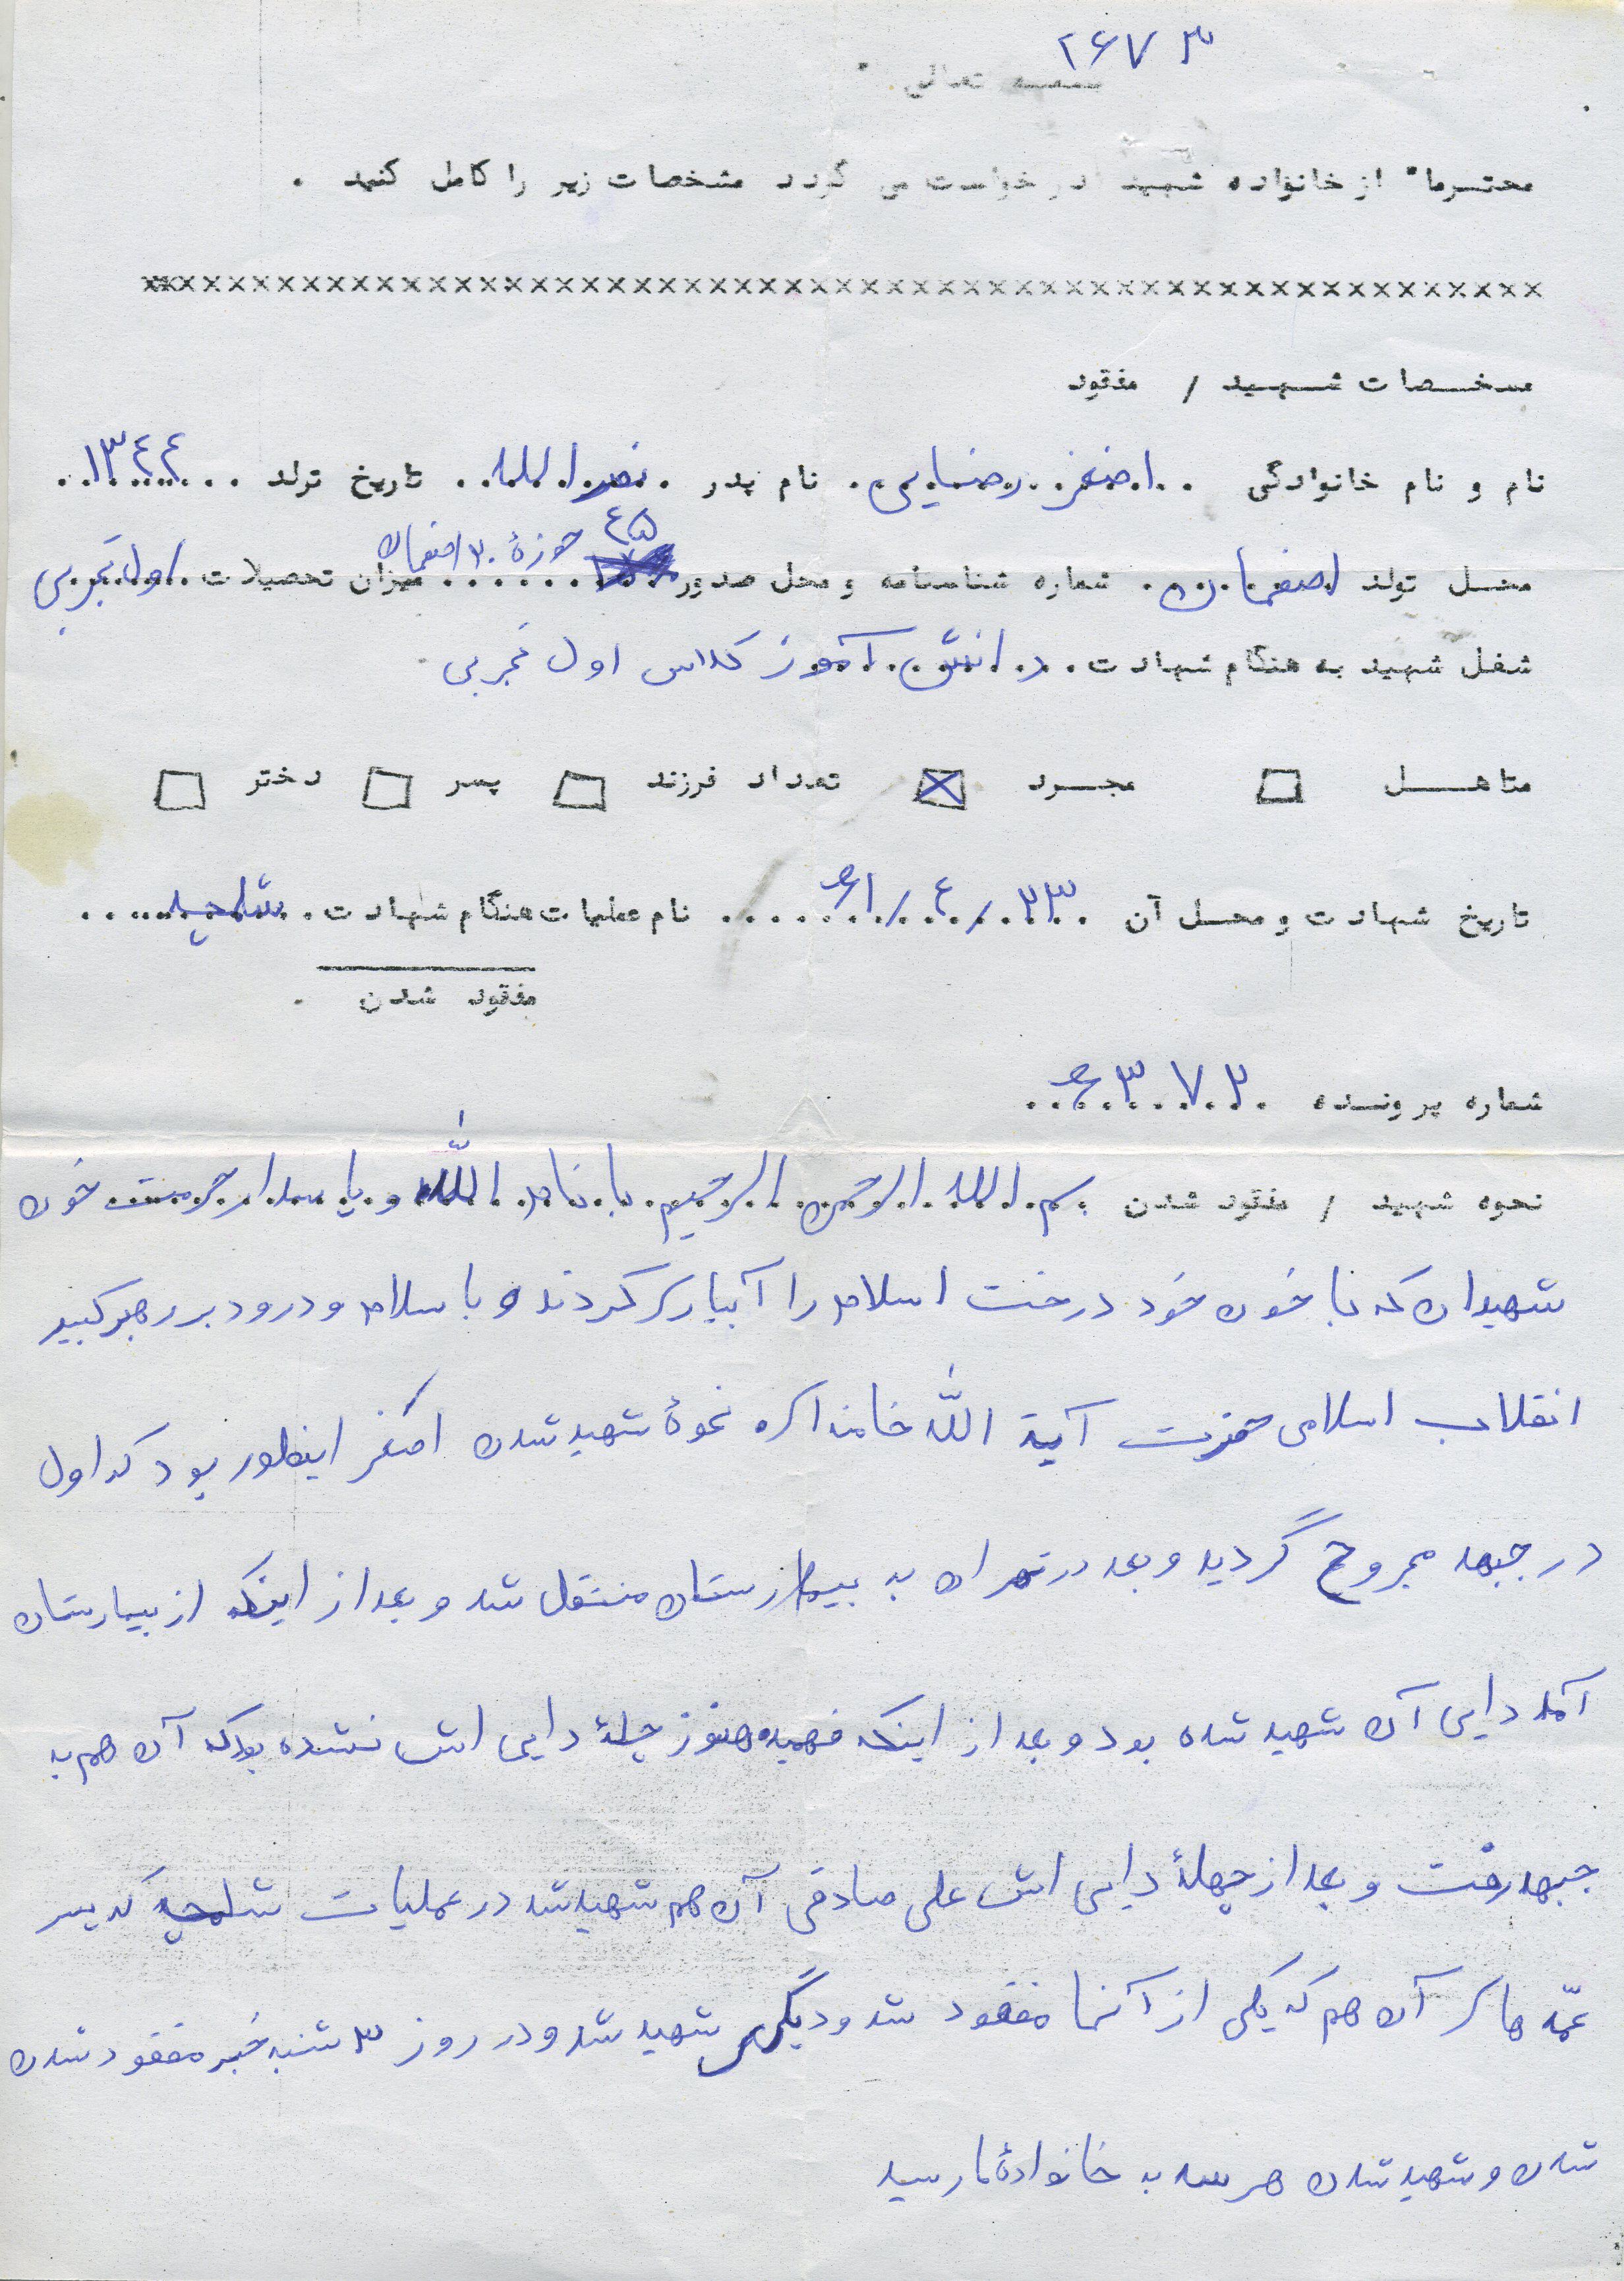 ۲۶۷۳
بسمه تعالی
محترما" از خانواده شهید درخواست می گردد مشخصات زیر را کامل کنید .
××××××××××××××××××××××××××××××××××××××××××××××××××××××
مشخصات شهید / مفقود
نام و نام خانوادگی . . اصغر رضایی . نام پدر . نصرالله . . تاریخ تولد . . ۱۳٤٤ . .
محل تولد اصفهان . شماره شناسنامه و محل صدور ٤۵ حوزهٔ ۳۰ اصفهان میزان تحصیلات اول تجربی
شغل شهید به هنگام شهادت . . دانش آموز کلاس اول تجربی
متاهل □ مجرد ☒ تعداد فرزند □ پسر □ دختر □
تاریخ شهادت و محل آن ۲۳/٤/۶۱ نام عملیات هنگام شهادت . شلمچه
مفقود شدن .
شماره پرونده ۶۳۷۲
نحوه شهید / مفقود شدن بسم الله الرحمن الرحیم با نام الله و پاسدار حرمت خون
شهیدان که با خون خود درخت اسلام را آبیاری کردند و با سلام و درود بر رهبر کبیر
انقلاب اسلامی حضرت آیة الله خامنه‌ای نحوهٔ شهید شدن اصغر اینطور بود که اول
در جبهه مجروح گردید و بعد در تهران به بیمارستان منتقل شد و بعد از اینکه از بیمارستان
آمد دایی آن شهید شده بود و بعد از اینکه فهمید هنوز چلهٔ دایی اش نشده بود که آن هم به
جبهه رفت و بعد از چهلهٔ دایی اش علی صادقی آن هم شهید شد در عملیات شلمچه که پسر
عمّه های آن هم که یکی از آنها مفقود شد و دیگری شهید شد و در روز ۳ شنبه خبر مفقود شدن
شدن و شهید شدن هر سه به خانوادهٔ ما رسید